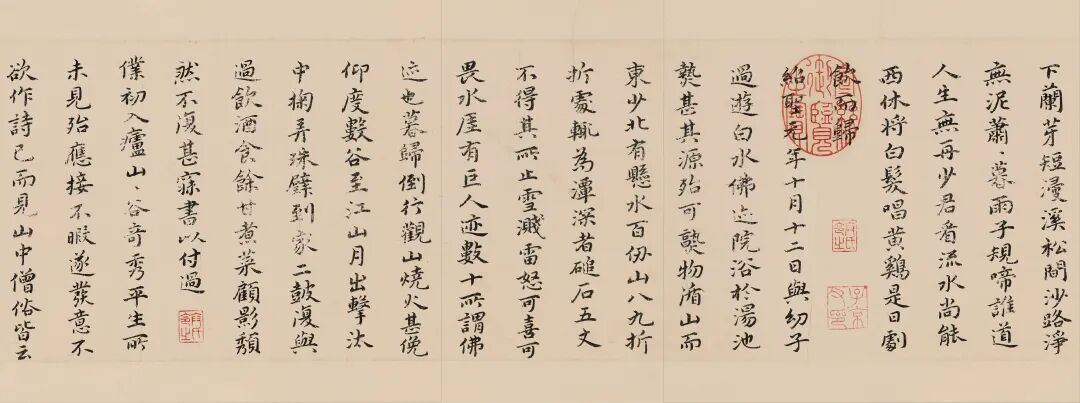 下蘭芽短漫溪松間沙路淨
無泥蕭〻暮雨子規啼誰道
人生無再少君看流水尚能
西休將白髮唱黄鷄是日劇
飲而歸
紹聖元年十月十二日與幼子
過遊白水佛迹院浴於湯池
𤍠甚其源殆可𤍠物循山而
東少北有懸水百仞山八九折
折處輒為潭深者磓石五丈
不得其所止雪濺雷怒可喜可
畏水厓有巨人迹數十所謂佛
迹也暮歸倒行觀山燒火甚俛
仰度數谷至江山月出擊汰
中掬弄珠璧到家二鼓復與
過飲酒食餘甘煮菜顧影頽
然不復甚寐書以付過
僕初入廬山〻谷奇秀平生所
未見殆應接不暇遂發意不
欲作詩已而見山中僧俗皆云